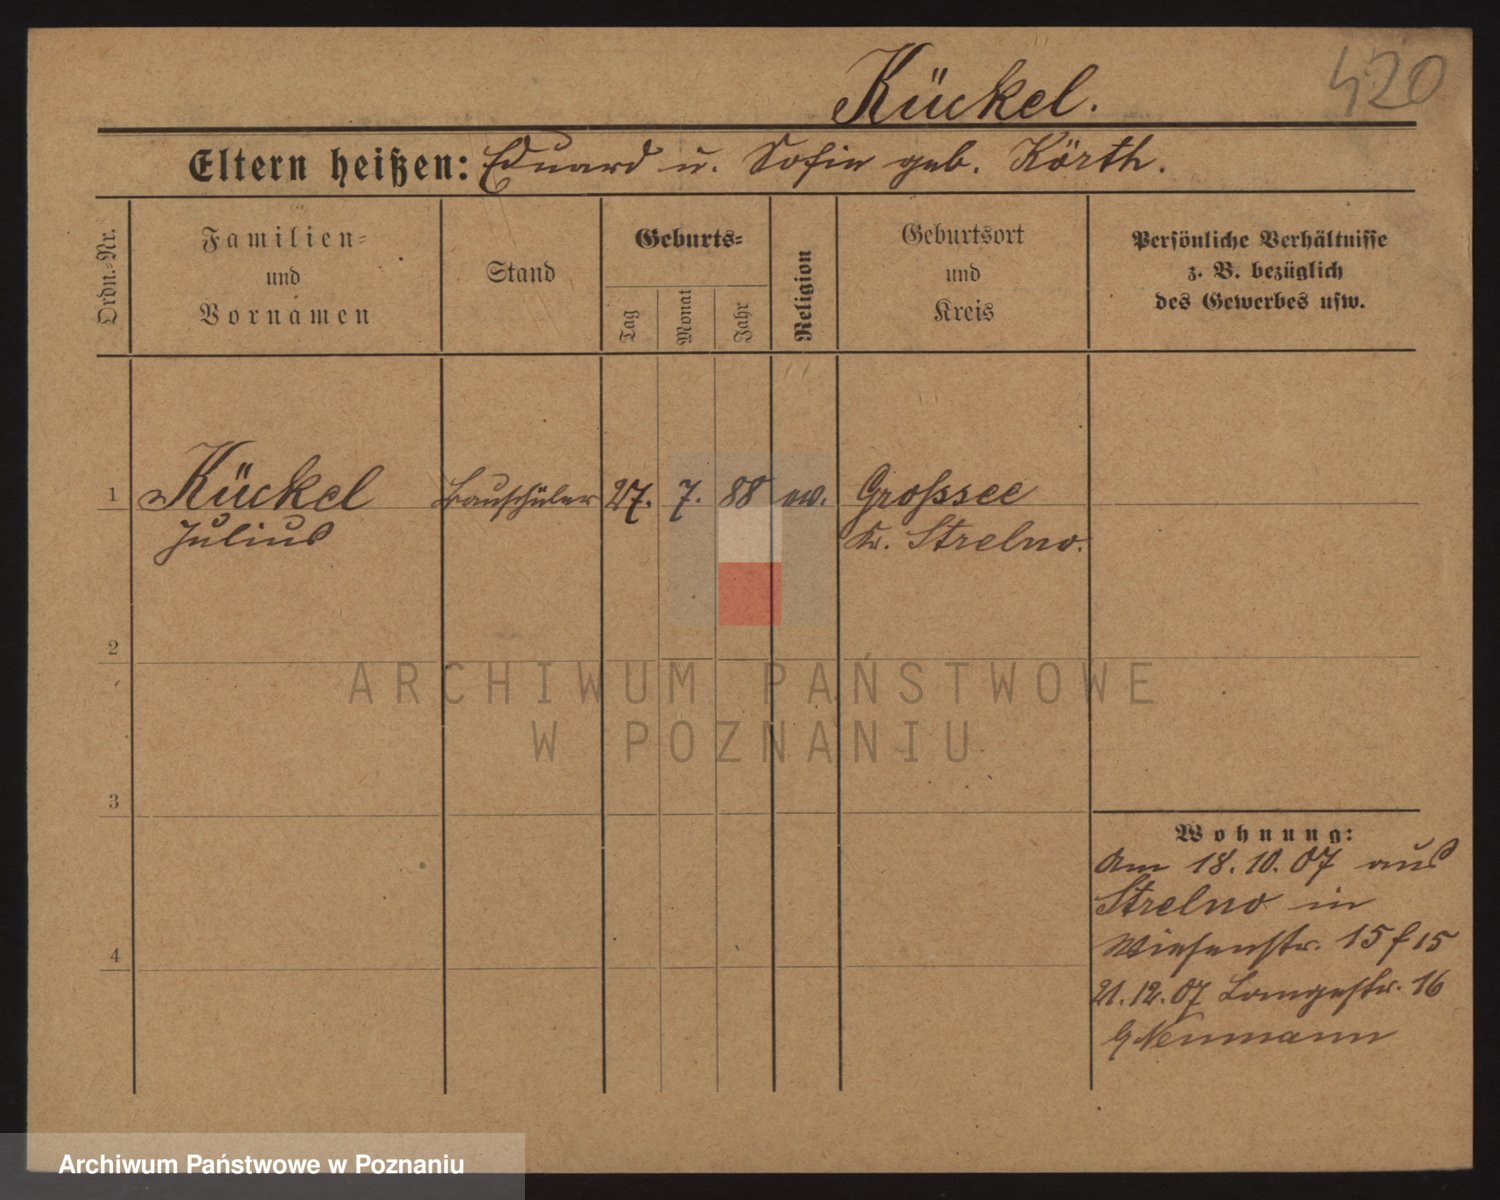 420
Kückel.
Eltern heißen: Eduard u. Sofie geb. Körth.
Ordn.-Nr.
Familien-
und
Vornamen
Stand
Geburts-
Tag
Monat
Jahr
Religion
Geburtsort
und
Kreis
Persönliche Verhältnisse
z. B. bezüglich
des Gewerbes usw.
1 Kückel Bauschüler 27. 7. 88 ev. Grossee
Julius Kr. Strelno.
2
ARCHIWUM PAŃSTWOWE
W POZNANIU
3
Wohnung:
Am 18.10.07 aus
Strelno in
4
Wiesenstr. 15 f 15
21.12.07 Langestr. 16
Neumann
Archiwum Państwowe w Poznaniu